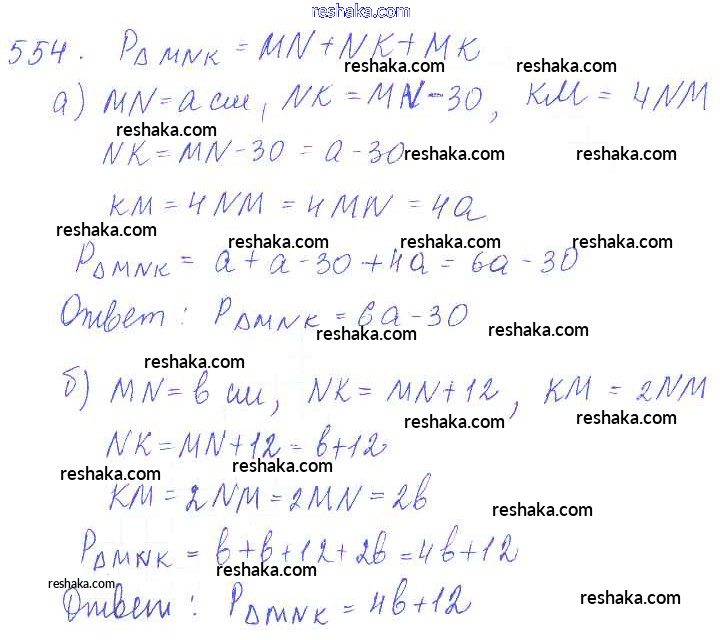 reshaka.com
554. P△MNK = MN + NK + MK
reshaka.com reshaka.com
а) MN = a см, NK = MN - 30, KM = 4NM
reshaka.com
NK = MN - 30 = a - 30
reshaka.com reshaka.com
KM = 4NM = 4MN = 4a
reshaka.com reshaka.com reshaka.com
P△MNK = a + a - 30 + 4a = 6a - 30
Ответ: P△MNK = 6a - 30
reshaka.com reshaka.com
reshaka.com
б) MN = b см, NK = MN + 12, KM = 2NM
reshaka.com reshaka.com
NK = MN + 12 = b + 12
reshaka.com reshaka.com
KM = 2NM = 2MN = 2b
reshaka.com
P△MNK = b + b + 12 + 2b = 4b + 12
reshaka.com reshaka.com
Ответ: P△MNK = 4b + 12
reshaka.com reshaka.com